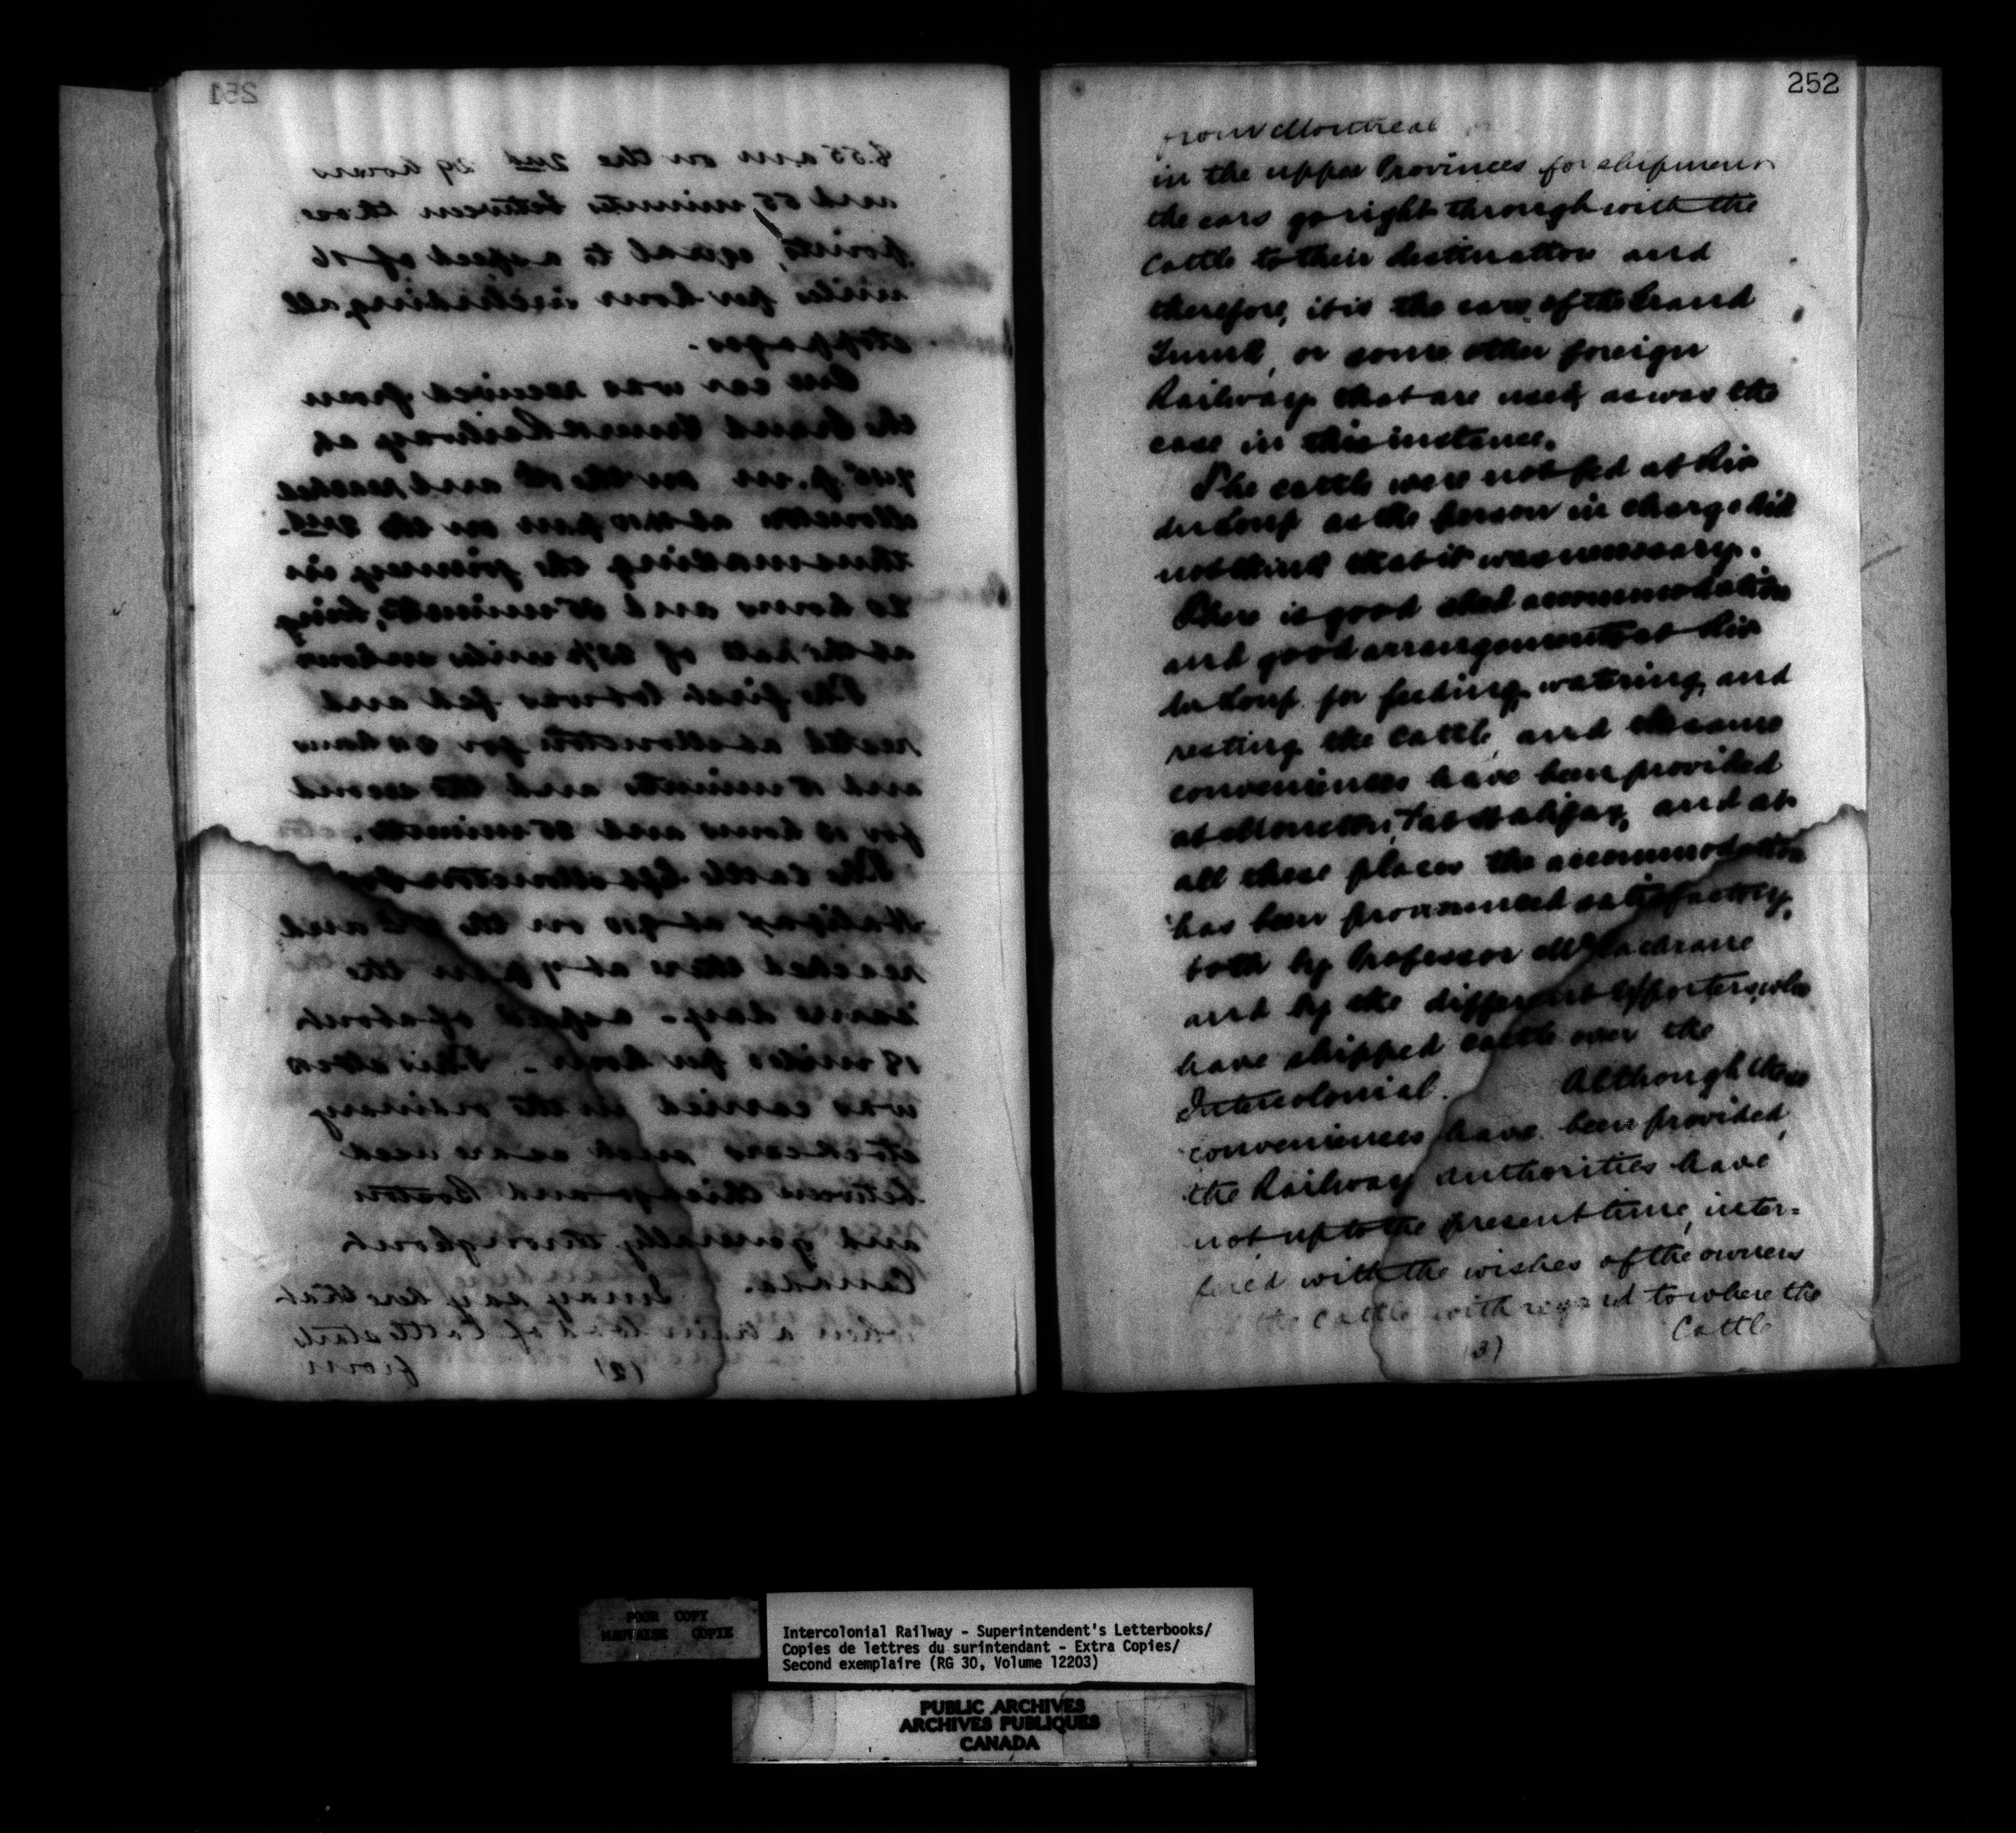 251
8.55 am on the 2nd 29 hours
and 55 minutes between those
points, equal to a speed of 16
miles per hour including all
stoppages.
One car was received from
the Grand Trunk Railway at
p.m. on the and reached
Moncton at pm on the 2nd.
thus making the journey in
20 hours and minutes, being
at the rate of miles an hour
The first lot was fed and
rested at Moncton for hours
and minutes and the second
for hours and minutes.
The cattle left Moncton for
Halifax at on the and
reached there at 7 pm the
same day - a speed of about
18 miles per hour. - This stock
was carried in the ordinary
stock cars such as are used
between Chicago and Boston
and generally throughout
Canada. I may say here that
when a train load of Cattle start
(2) from
252
from Montreal
in the upper Provinces for shipment
the cars go right through with the
Cattle to their destination and
therefore, it is the cars of the Grand
Trunk, or some other foreign
Railway that are used, as was the
case in this instance.
The cattle were not fed at Riv
du Loup as the person in charge did
not think that it was necessary.
There is good shed accommodation
and good arrangements at Riv
du Loup for feeding, watering, and
resting the Cattle, and the same
conveniences have been provided
at Moncton, & at Halifax, and at
all these places the accommodation
has been pronounced satisfactory,
both by Professor McEachrane
and by the different Exporters, who
have shipped cattle over the
Intercolonial. Although these
conveniences have been provided,
the Railway authorities have
not up to the present time, inter=
fered with the wishes of the owners
of the Cattle with regard to where the
(3) Cattle
POOR COPY
MAUVAISE COPIE
Intercolonial Railway - Superintendent's Letterbooks/
Copies de lettres du surintendant - Extra Copies/
Second exemplaire (RG 30, Volume 12203)
PUBLIC ARCHIVES
ARCHIVES PUBLIQUES
CANADA